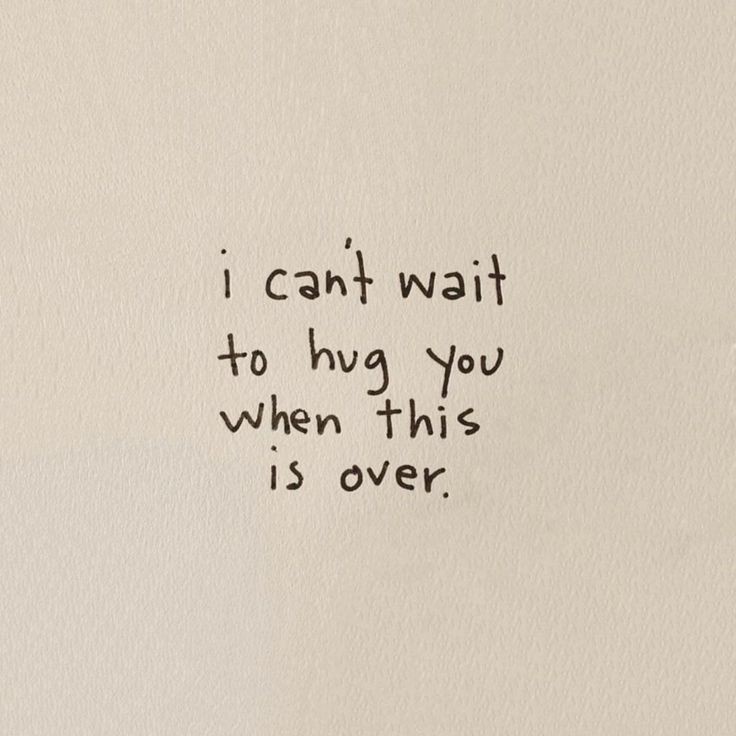 i can't wait
to hug you
when this
is over.